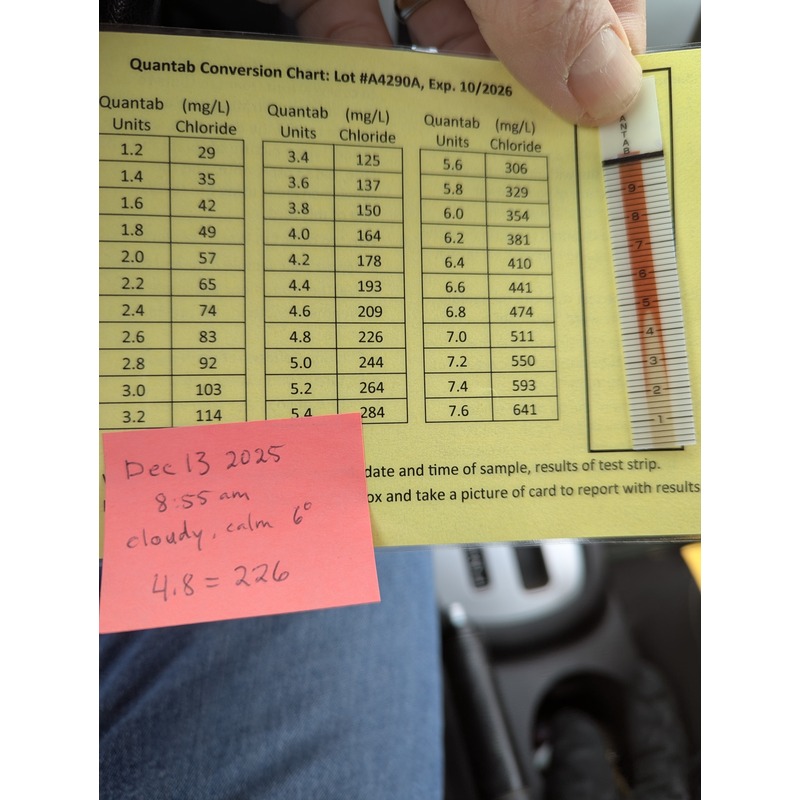 Quantab Conversion Chart: Lot #A4290A, Exp. 10/2026
Quantab Units (mg/L) Chloride
1.2 29
1.4 35
1.6 42
1.8 49
2.0 57
2.2 65
2.4 74
2.6 83
2.8 92
3.0 103
3.2 114
Quantab Units (mg/L) Chloride
3.4 125
3.6 137
3.8 150
4.0 164
4.2 178
4.4 193
4.6 209
4.8 226
5.0 244
5.2 264
5.4 284
Quantab Units (mg/L) Chloride
5.6 306
5.8 329
6.0 354
6.2 381
6.4 410
6.6 441
6.8 474
7.0 511
7.2 550
7.4 593
7.6 641
ANTAB
9
8
7
6
5
4
3
2
1
date and time of sample, results of test strip.
ox and take a picture of card to report with results
Dec 13 2025
8:55 am
cloudy, calm 6°
4.8 = 226